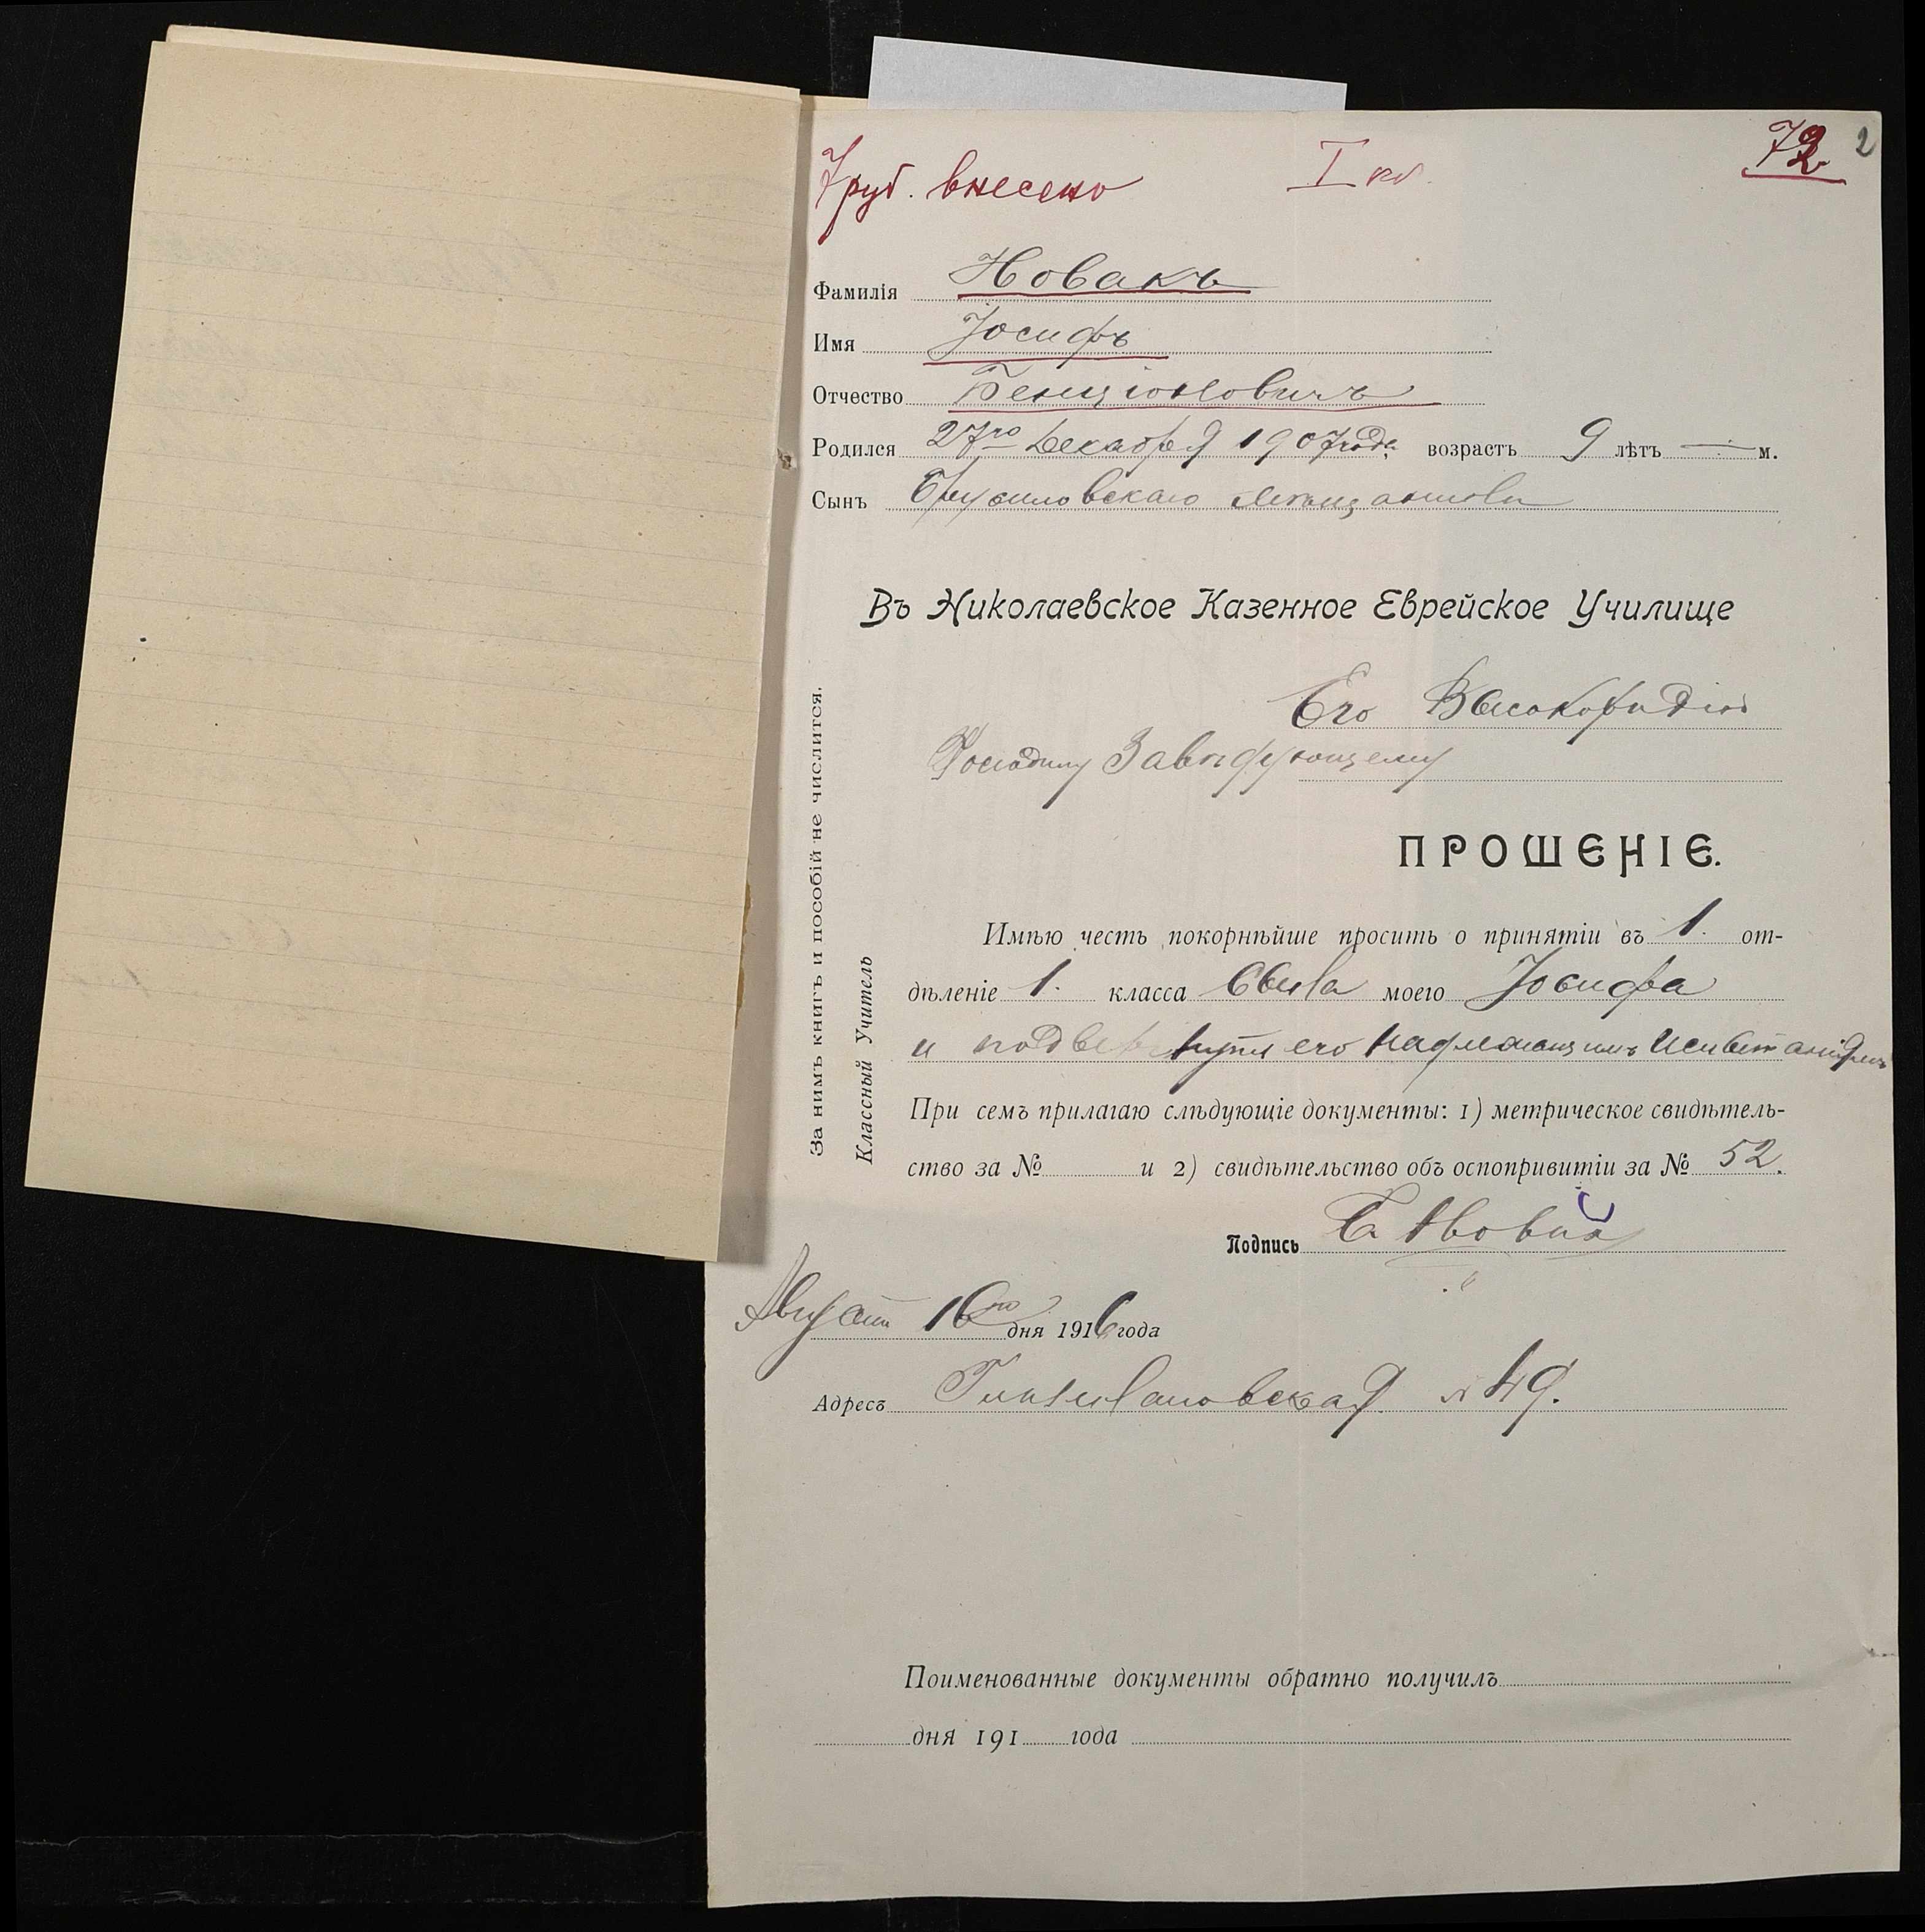 7 руб. внесено
I кл.
72
2
Фамилія Новакъ
Имя Іосифъ
Отчество Бенціоновичъ
Родился 27го Декабря 1907 года возрастъ 9 лѣтъ — м.
Сынъ Брусиловскаго мѣщанина
Въ Николаевское Казенное Еврейское Училище
Его Высокородію
Господину Завѣдующему
ПРОШЕНІЕ.
Имѣю честь покорнѣйше просить о принятіи въ 1. от-
дѣленіе 1. класса сына моего Іосифа
и подвергнуть его надлежащимъ испытаніямъ
При семъ прилагаю слѣдующіе документы: 1) метрическое свидѣтель-
ство за № и 2) свидѣтельство объ оспопривитіи за № 52.
Подпись Б. Новак
Август 16го дня 1916 года
Адресъ № 49.
Поименованные документы обратно получилъ
дня 191 года
За нимъ книгъ и пособій не числится.
Классный Учитель